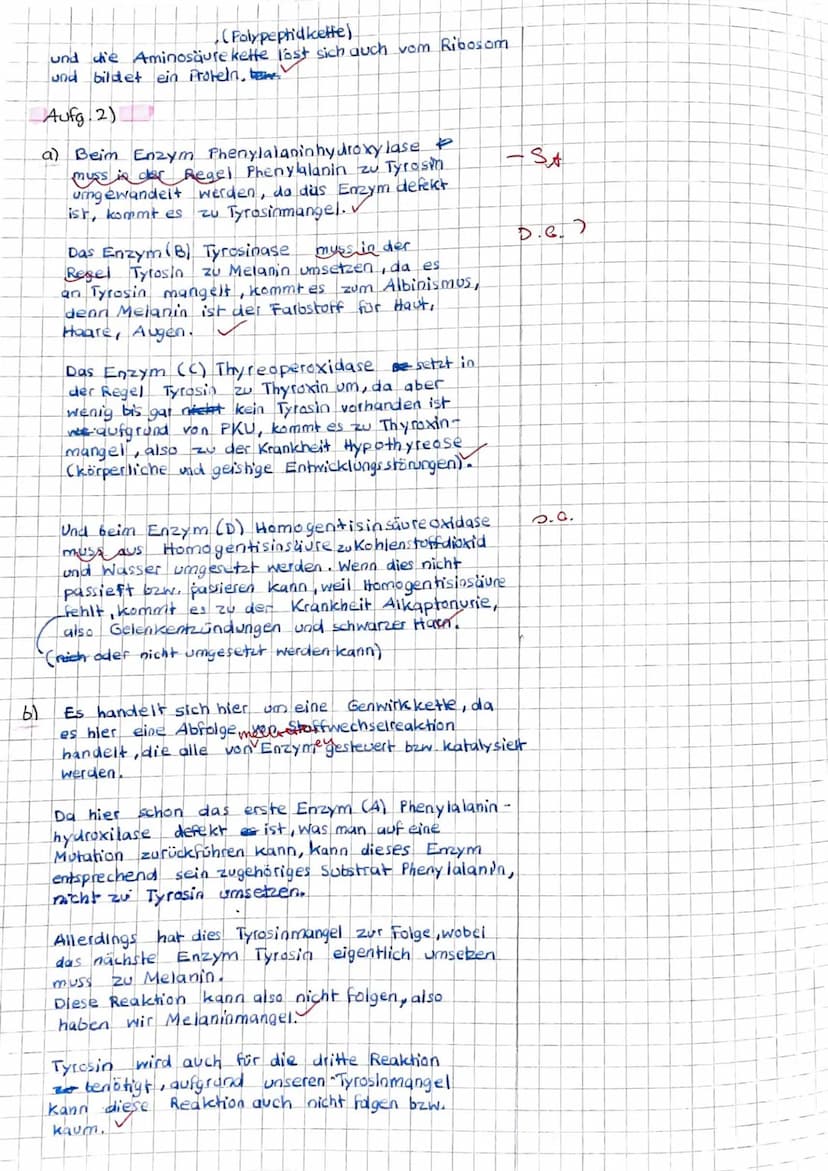 (Polypeptidkette)
und die Aminosäurekette löst sich auch vom Ribosom
und bildet ein Protein.
Aufg. 2)
a) Beim Enzym Phenylalaninhydroxylase
muss in der Regel Phenylalanin zu Tyrosin
umgewandelt werden, da das Enzym defekt
ist, kommt es zu Tyrosinmangel.
Das Enzym (B) Tyrosinase muss in der
Regel Tyrosin zu Melanin umsetzen, da es
an Tyrosin mangelt, kommt es zum Albinismus,
denn Melanin ist der Farbstoff für Haut,
Haare, Augen.
Das Enzym (C) Thyreoperoxidase setzt in
der Regel Tyrosin zu Thyroxin um, da aber
wenig bis gar kein Tyrosin vorhanden ist
aufgrund von PKU, kommt es zu Thyroxin-
mangel, also zu der Krankheit Hypothyreose
(körperliche und geistige Entwicklungsstörungen).
Und beim Enzym (D) Homogentisinsäureoxidase
muss aus Homogentisinsäure zu Kohlenstoffdioxid
und Wasser umgesetzt werden. Wenn dies nicht
passiert bzw. passieren kann, weil Homogentisinsäure
fehlt, kommt es zu der Krankheit Alkaptonurie,
also Gelenkentzündungen und schwarzer Harn.
(oder nicht umgesetzt werden kann)
b) Es handelt sich hier um eine Genwirkkette, da
es hier eine Abfolge von Stoffwechselreaktion
handelt, die alle von Enzymen gesteuert bzw. katalysiert
werden.
Da hier schon das erste Enzym (A) Phenylalanin-
hydroxilase defekt ist, was man auf eine
Mutation zurückführen kann, kann dieses Enzym
entsprechend sein zugehöriges Substrat Phenylalanin,
nicht zu Tyrosin umsetzen.
Allerdings hat dies Tyrosinmangel zur Folge, wobei
das nächste Enzym Tyrosin eigentlich umsetzen
muss zu Melanin.
Diese Reaktion kann also nicht folgen, also
haben wir Melaninmangel.
Tyrosin wird auch für die dritte Reaktion
benötigt, aufgrund unseren Tyrosinmangel
kann diese Reaktion auch nicht folgen bzw.
kaum.